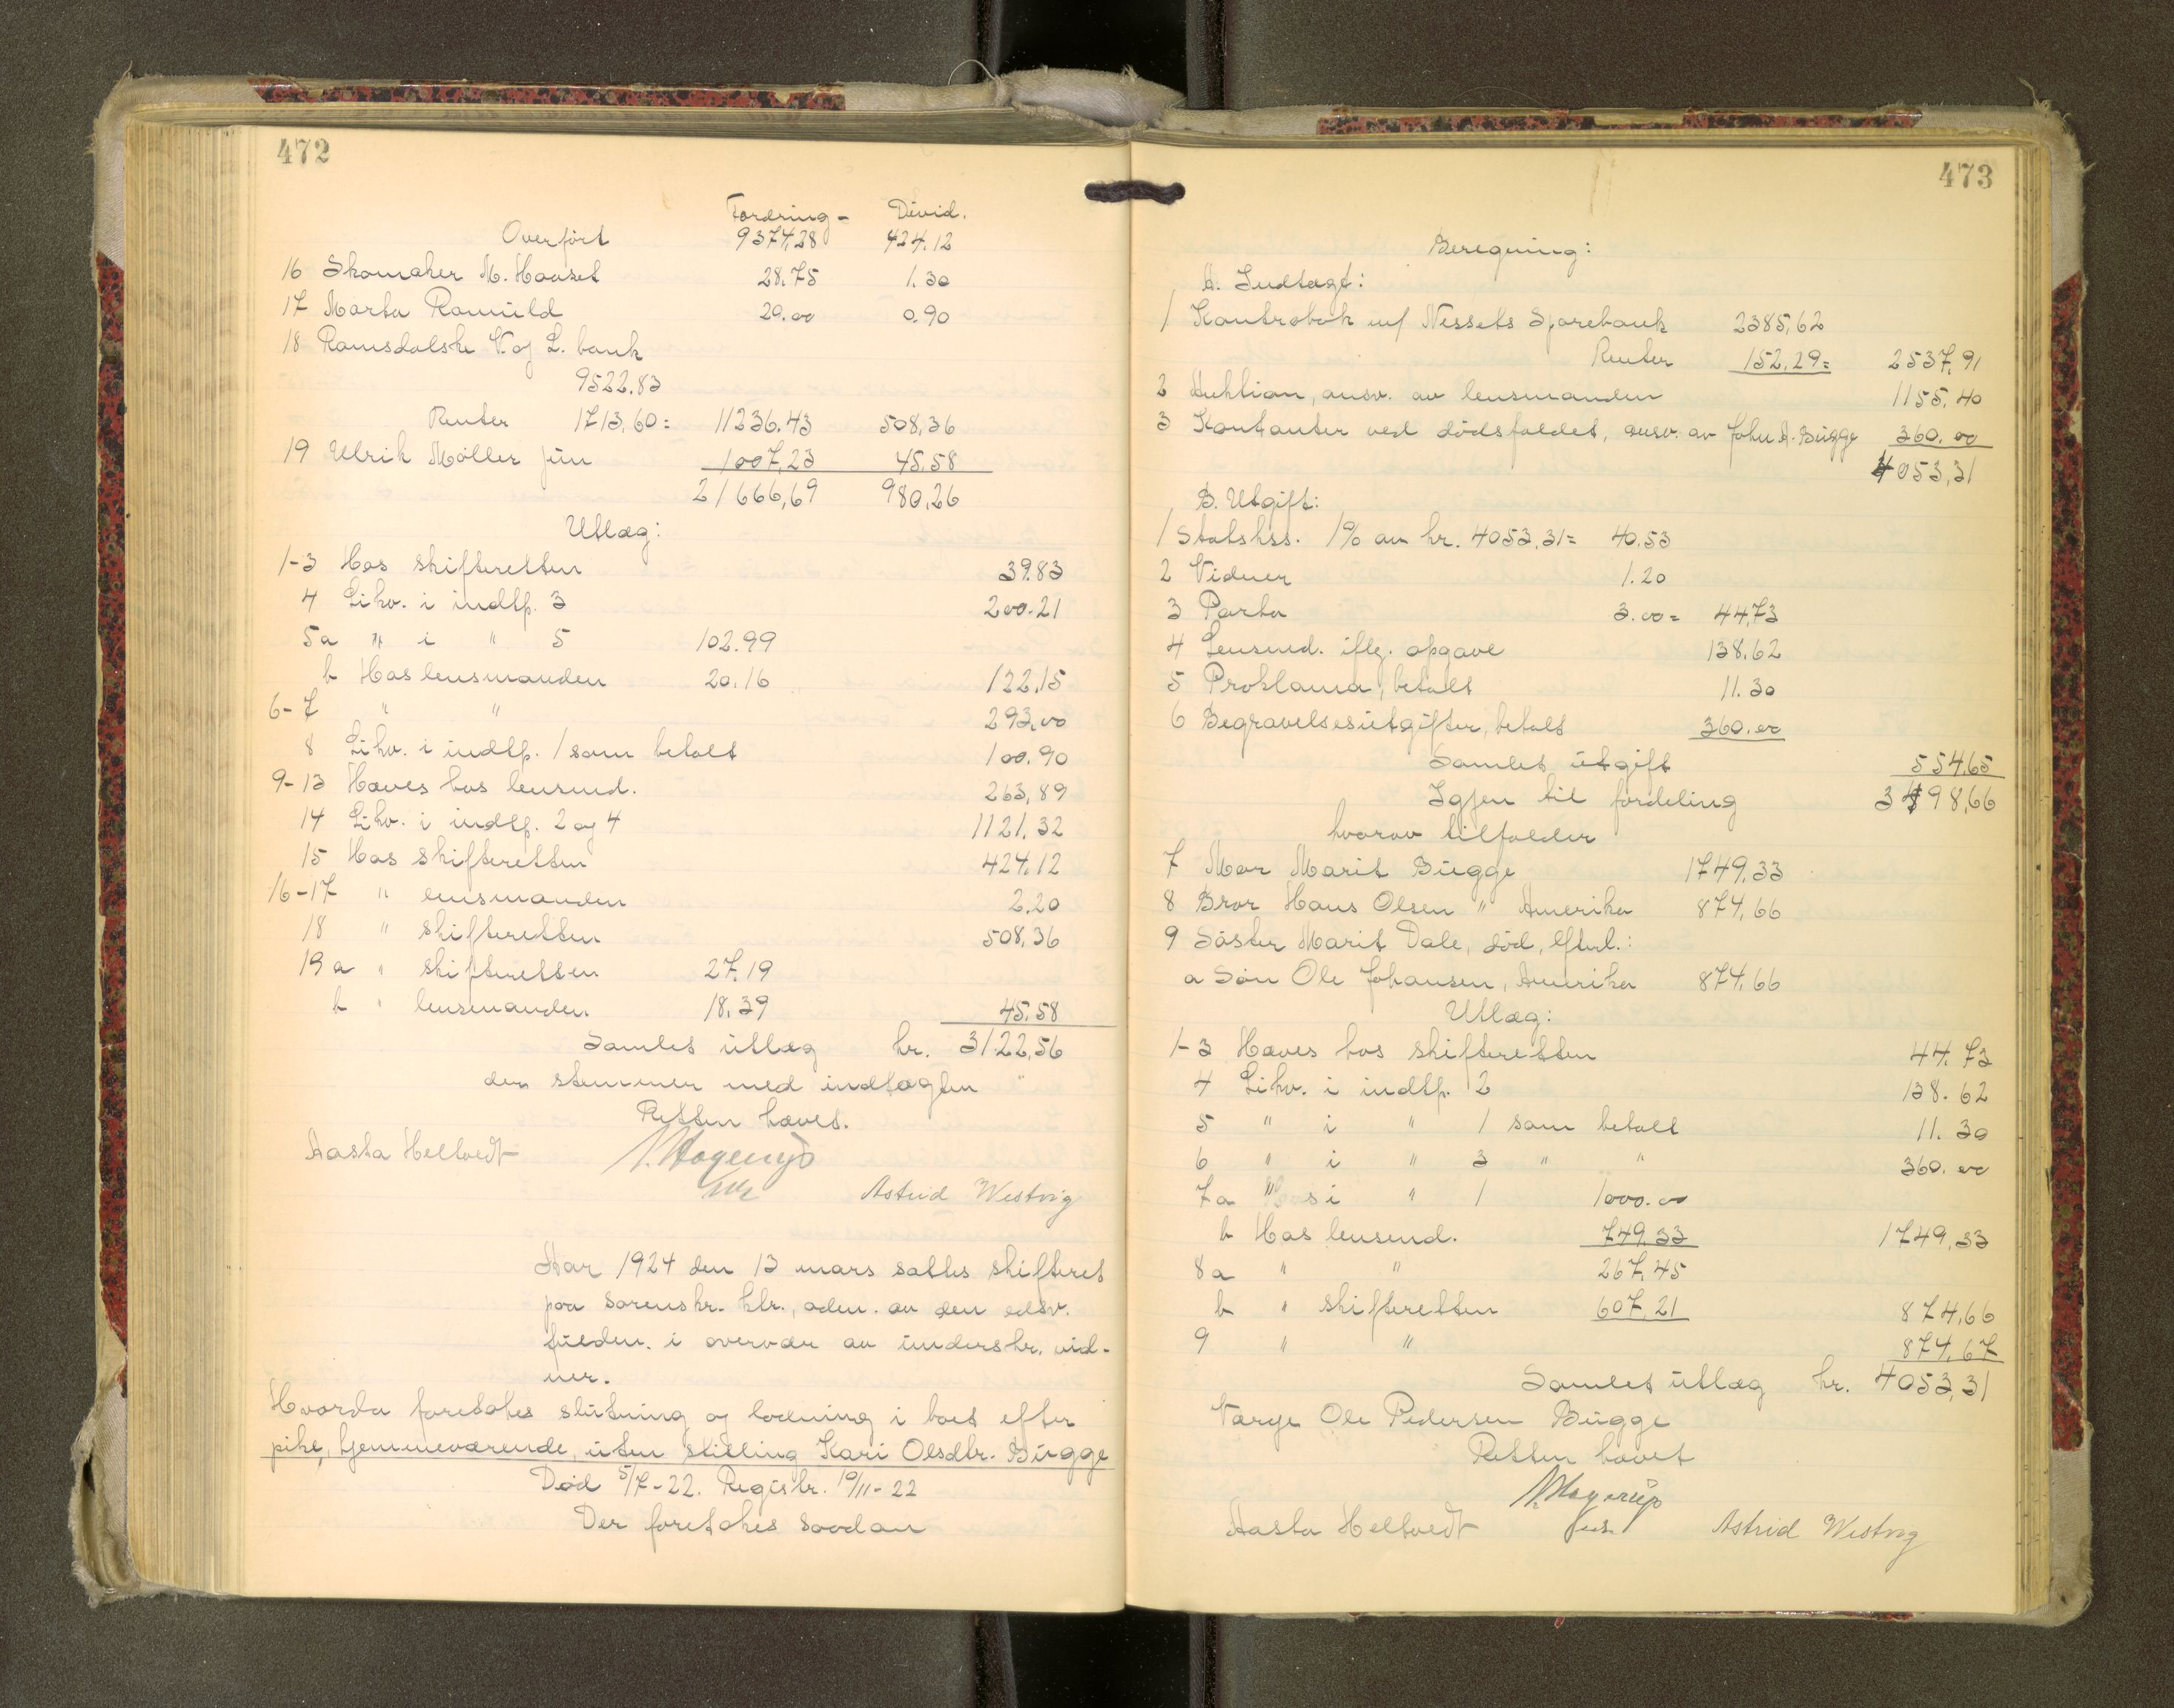 472
Fordring- Divid.
Overført 9374,28 424.12
16 Skomaker M. Hauset 28.75 1.30
17 Marta Ranvild 20.00 0.90
18 Romsdalske V. og L. bank
9522.83
Renter 1713,60= 11236.43 508,36
19 Ulrik Møller jun 1007,23 45.58
21666,69 980,26
Utlæg:
1-3 Hos skifteretten 39.83
4 Likv. i indtp. 3 200.21
5a " i " 5 102.99
b Hos lensmanden 20.16 122,15
6-7 " " 293,00
8 Likv. i indtp. 1 som betalt 100.90
9-13 Hæves hos lensmd. 263,89
14 Likv. i indtp. 2 og 4 1121.32
15 Hos skifteretten 424.12
16-17 " lensmanden 2.20
18 " skifteretten 508,36
19a " skifteretten 27.19
b " lensmanden. 18,39 45.58
Samlet utlæg kr. 3122,56
der stemmer med indtægten
Retten hævet.
Aasta Heltvedt
Astrid Westvig
Aar 1924 den 13 mars sattes skifteret
paa sorenskr. ktr., adm. av den edsv.
fuldm. i overvær av underskr. vid-
ner.
Hvorda foretokes slutning og lodning i boet efter
pike, hjemmeværende, uten stilling Kari Olsdtr. Bugge
Død 5/7-22. Registr. 10/11-22
Der foretokes saadan
473
Beregning:
A. Indtægt:
1 Kontrabok m/ Nessets Sparebank 2385,62
Renter 152,29= 2537,91
2 Auktion, ansv. av lensmanden 1155,40
3 Kontanter ved dødsfaldet, ansv. av John A. Bugge 360.00
4053,31
B. Utgift:
1 Statskss. 1% av kr. 4053,31= 40.53
2 Vidner 1.20
3 Porto 3.00= 44,73
4 Lensmd. iflg. opgave 138,62
5 Proklama, betalt 11.30
6 Begravelsesutgifter, betalt 360.00
Samlet utgift 554,65
Igjen til fordeling 3498,66
hvorav tilfalder
7 Mor Marit Bugge 1749.33
8 Bror Hans Olsen " Amerika 874,66
9 Søster Marit Dale, død, efterl.:
a Søn Ole Johansen, Amerika 874,66
Utlæg:
1-3 Hæves hos skifteretten 44.73
4 Likv. i indtp. 2 138.62
5 " i " 1 som betalt 11.30
6 " i " 3 " " 360.00
7a " i " 1 1000.00
b Hos lensmd. 749.33 1749,33
8a " " 267,45
b " skifteretten 607.21 874,66
9 " " 874,67
Samlet utlæg kr. 4053,31
Værge Ole Pedersen Bugge
Retten hævet
Aasta Heltvedt
Astrid Westvig